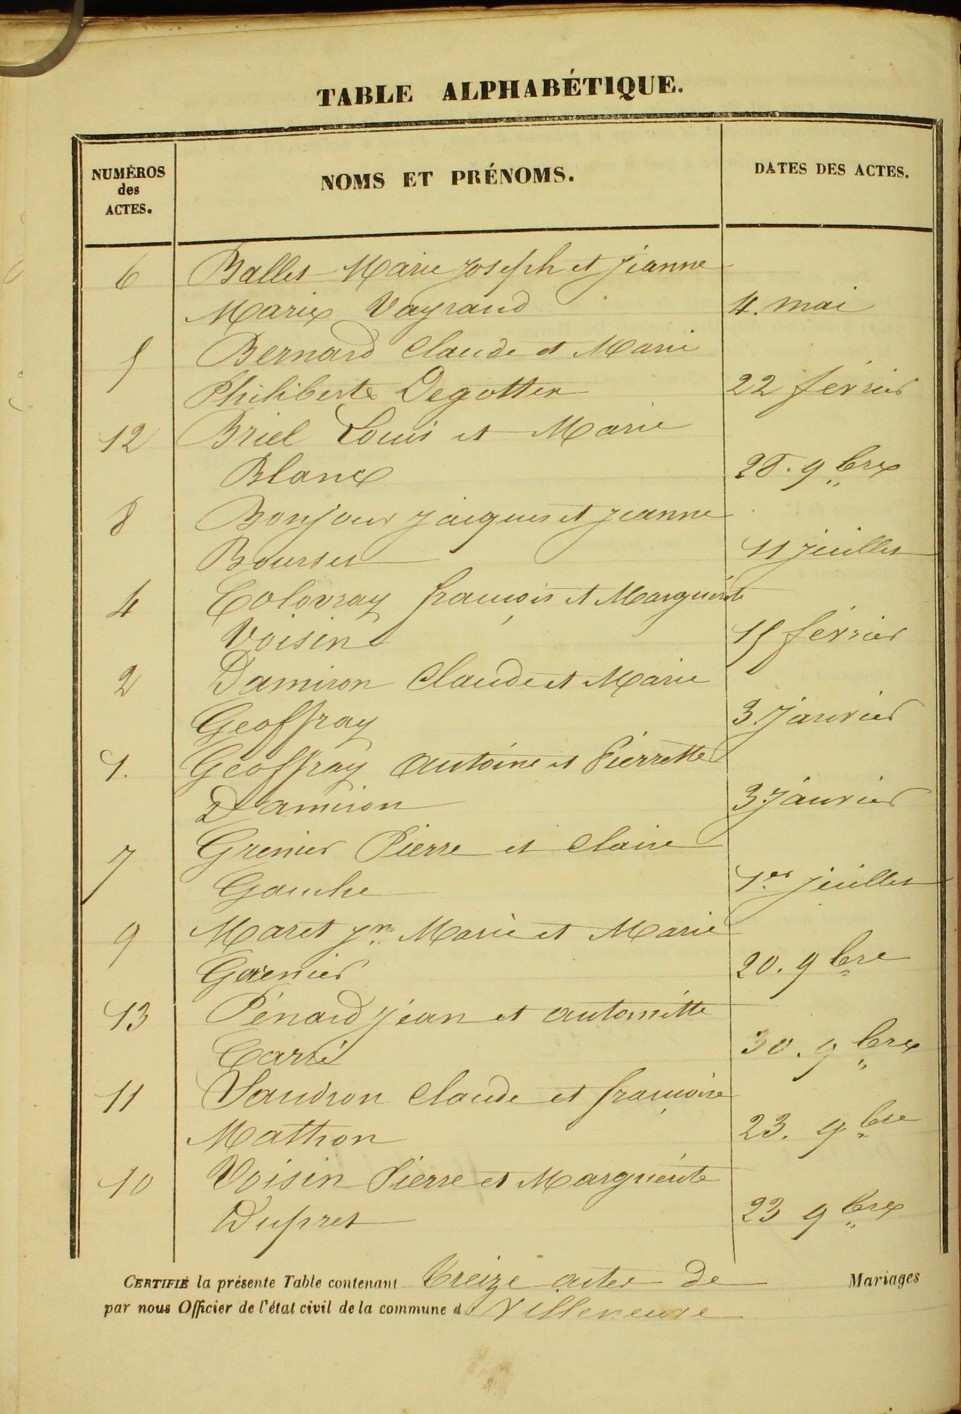 TABLE ALPHABÉTIQUE.
NUMÉROS des ACTES. NOMS ET PRÉNOMS. DATES DES ACTES.
6 Ballet Marie Joseph et Jeanne
Marie Vayraud 4. mai
5 Bernard Claude et Marie
Philiberte Degottex 22 février
12 Briel Louis et Marie
Blanc 28. 9bre
8 Bonjour Jacques et Jeanne
Bourset 11 juillet
4 Colovray françois et Marguerite
Voisin 15 février
2 Damiron Claude et Marie
Geoffray 3 Janvier
1. Geoffray Antoine et Pierrette
Damiron 3 Janvier
7 Grenier Pierre et Claire
Gauche 1er juillet
9 Maret Jn Marie et Marie
Grenier 20. 9bre
13 Pénard Jean et Antoinette
Carré 30. 9bre
11 Sandron Claude et françoise
Mathon 23. 9bre
10 Voisin Pierre et Marguerite
Dupret 23 9bre
CERTIFIÉ la présente Table contenant treize actes de Mariages
par nous Officier de l'état civil de la commune de Villeneuve